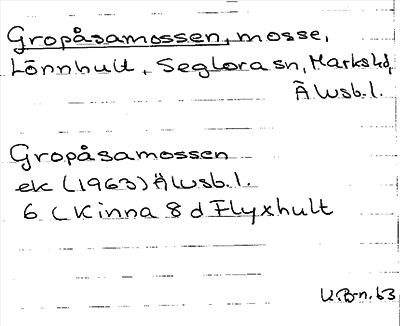 Gropåsamossen, mosse,
Lönnhult, Seglora sn, Marks hd,
Älvsb. l.
Gropåsamossen
ek (1963) Älvsb. l.
6 C Kinna 8 d Flyxhult
K.B-n. 63